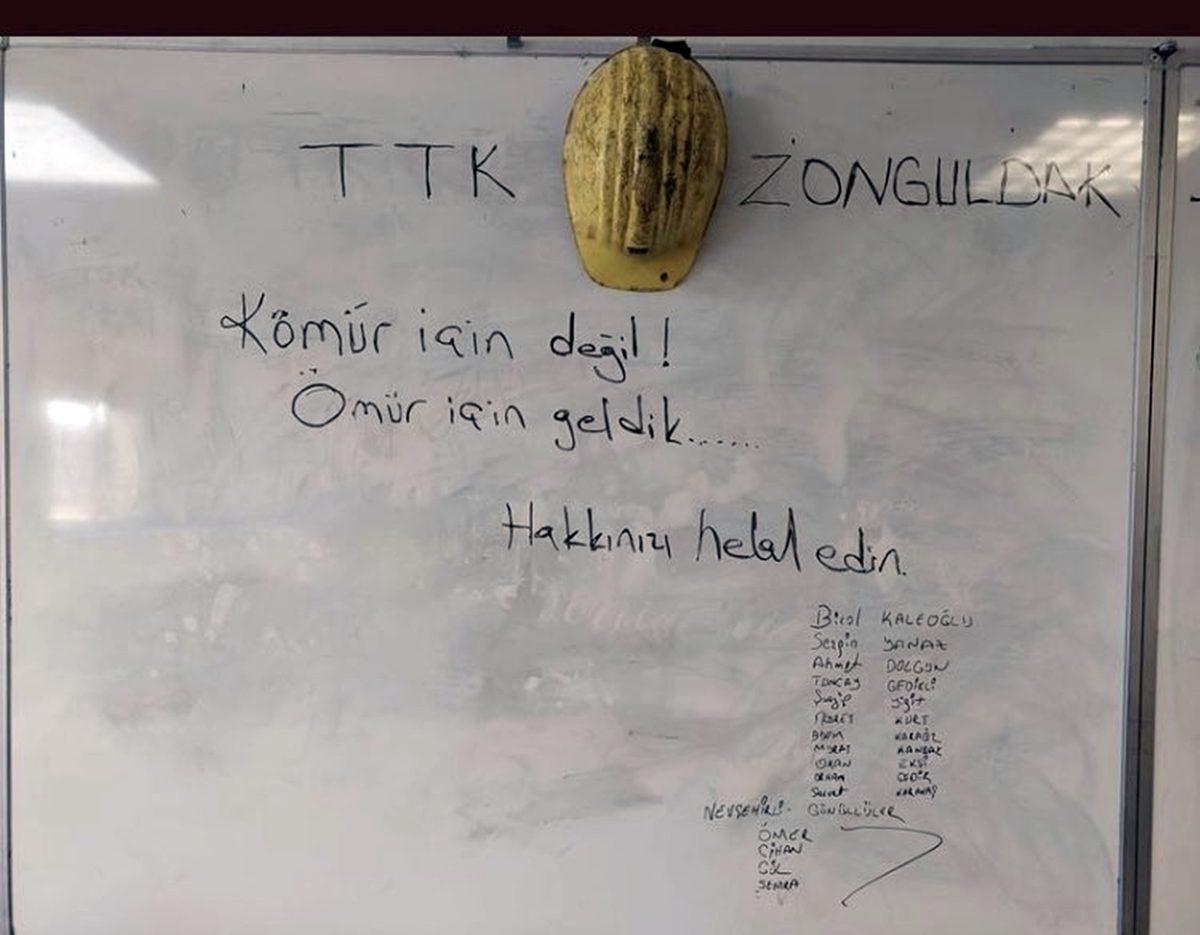 TTK ZONGULDAK
Kömür için değil!
Ömür için geldik.......
Hakkınızı helal edin.
Birol KALEOĞLU
Sezgin YANAZ
Ahmet DOLGUN
TUNCAY GEDİKLİ
Şuayip Yiğit
KURT
ADEM KARAÖZ
MURAT
EKŞİ
ORHAN GEDİK
Servet KARAKAŞ
NEVŞEHİRLİ- GÖNÜLLÜLER
ÖMER
CİHAN
GÜL
SEMRA